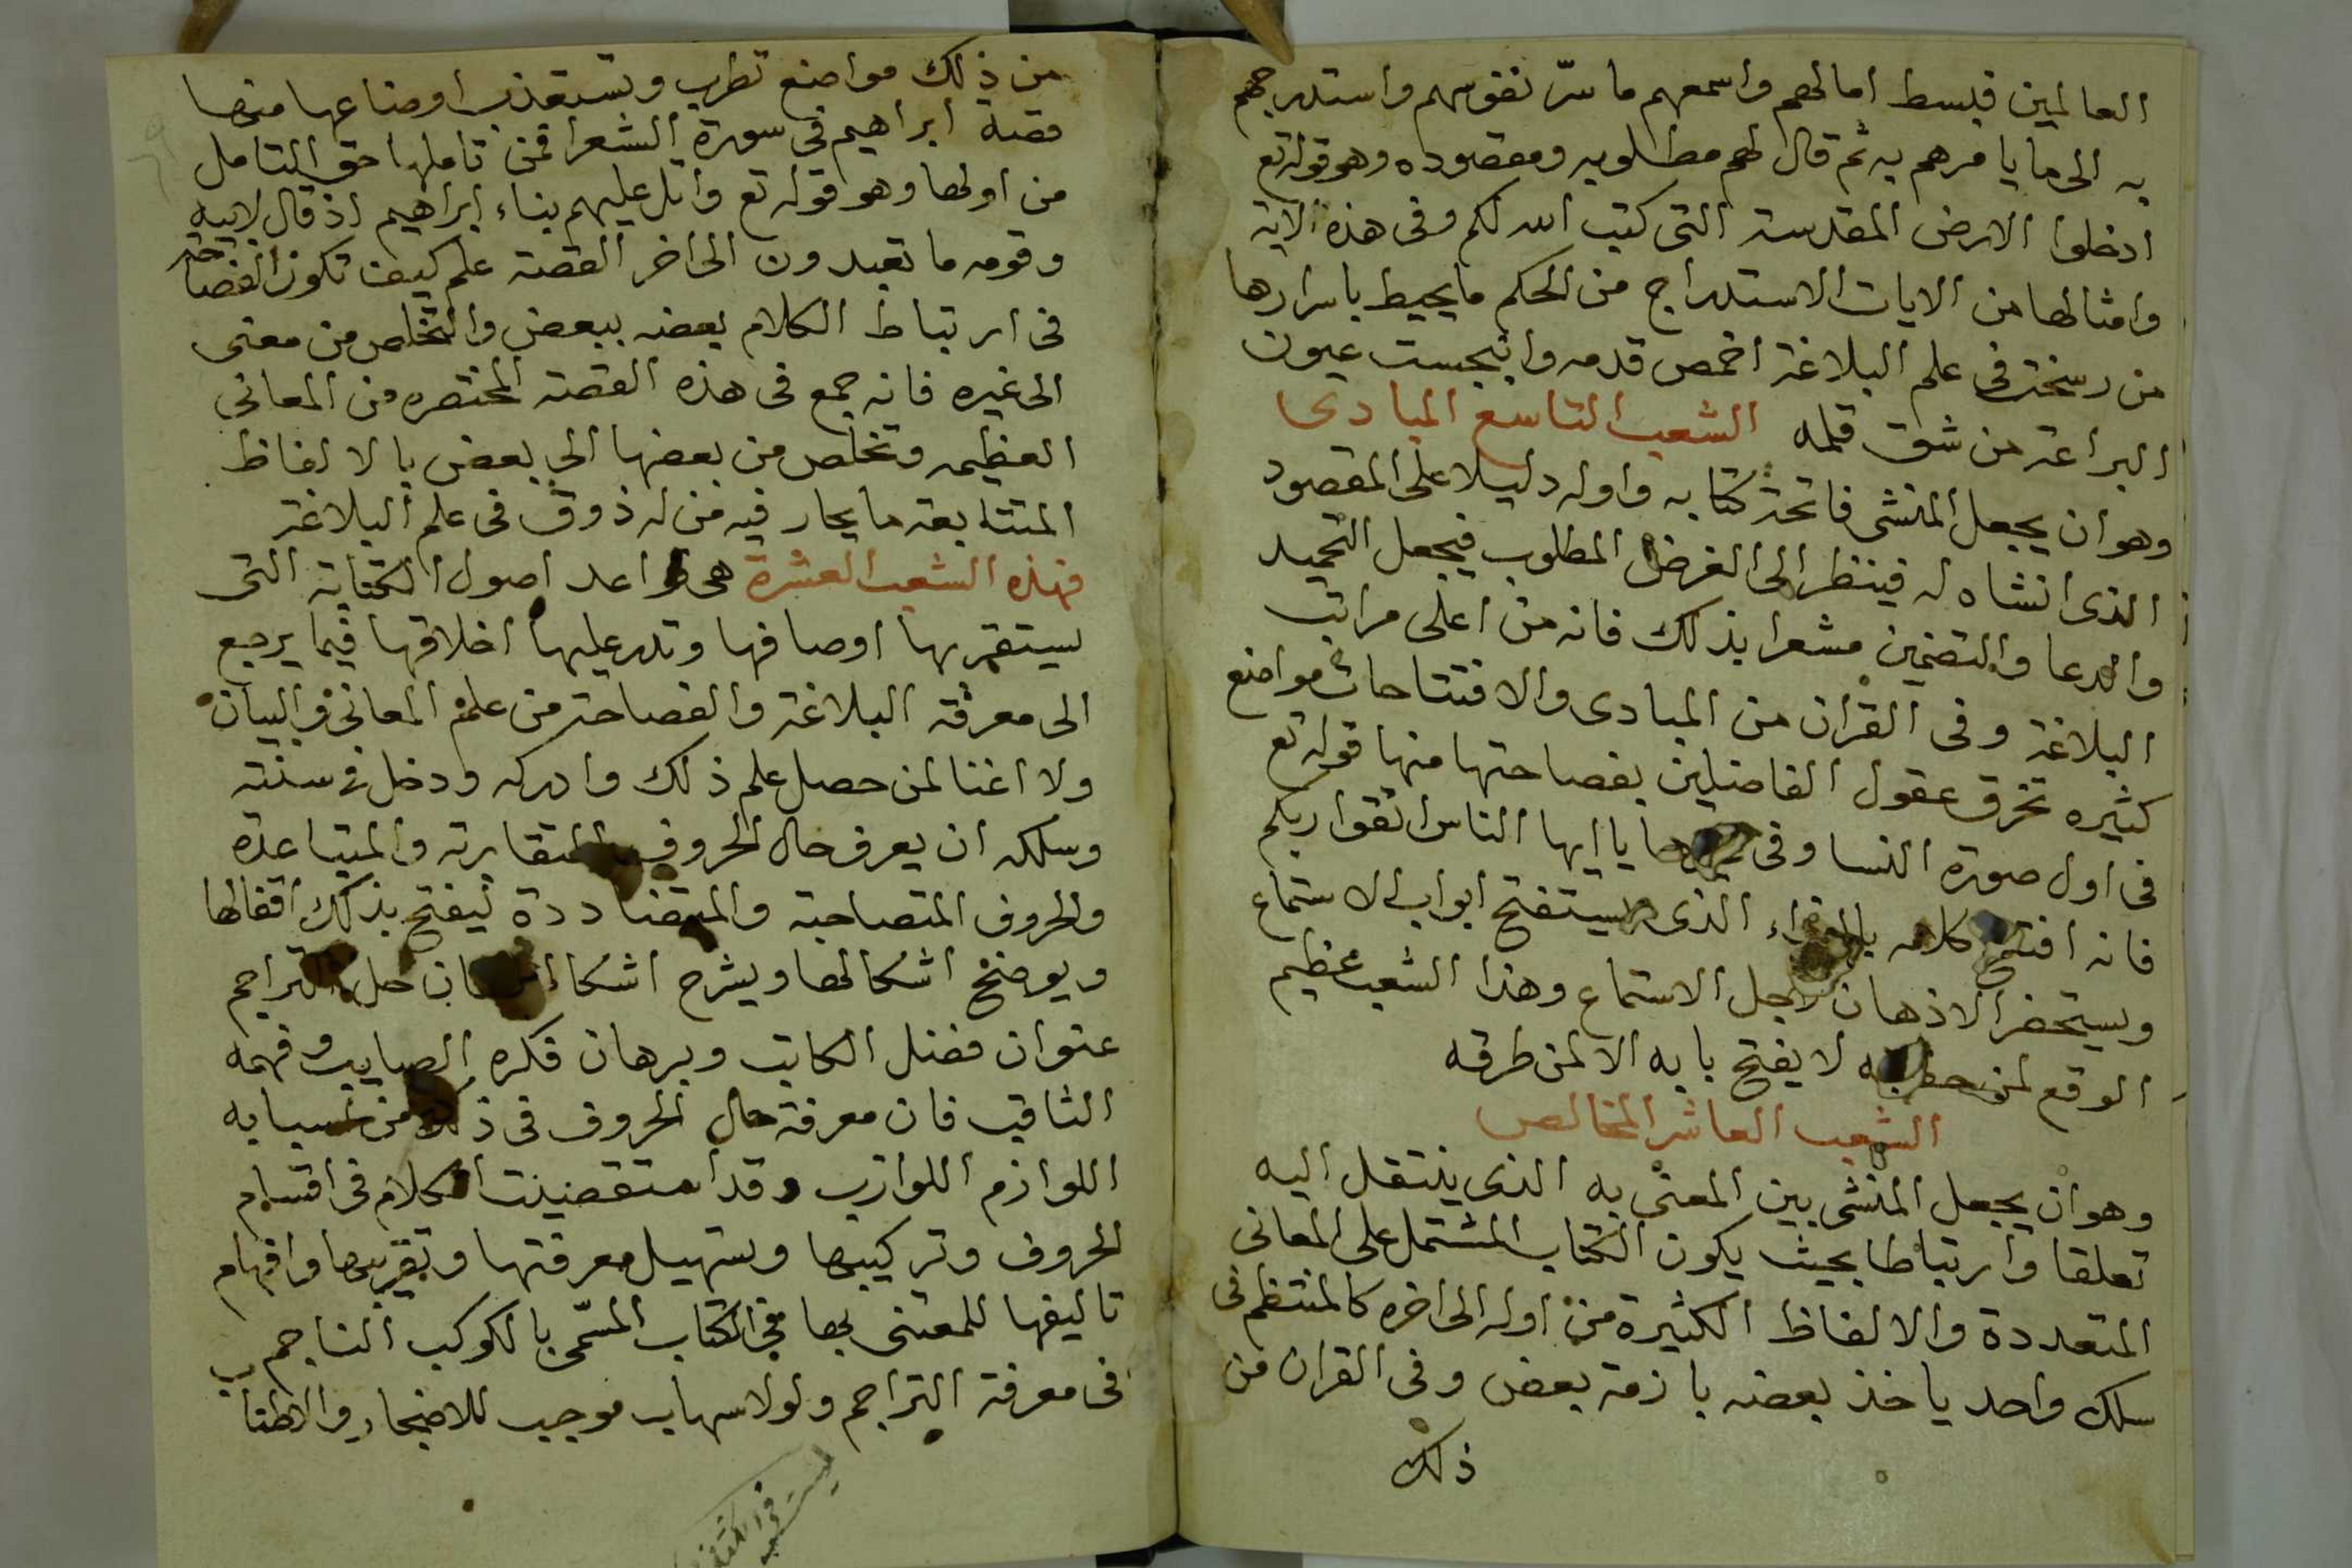 العالمين فبسط امالهم واسمعهم ما سرّ نفوسهم واستدرجهم
به الى ما يامرهم به ثم قال لهم مطلوبه ومقصوده وهو قوله تع
ادخلوا الارض المقدسة التى كتب الله لكم وفى هذه الاية
وامثالها من الايات الاستدراج من الحكم ما يحيط باسرارها
من رسخت فى علم البلاغة اخمص قدمه وانبجست عيون
البراعة من شق قلمه الشعب التاسع المبادى
وهو ان يجعل المنشى فاتحة كتابه واوله دليلا على المقصود
الذى انشاه له فينظر الى الغرض المطلوب فيجعل التحميد
والدعا والتضمين مشعرا بذلك فانه من اعلى مراتب
البلاغة وفى القران من المبادى والافتتاحات مواضع
كثيره تخرق عقول الفاضلين بفصاحتها منها قوله تع
فى اول صورة النسا وفى يا ايها الناس اتقوا ربكم
فانه افتتح كلامه الذى يستفتح ابواب الاستماع
ويستحضر الاذهان لاجل الاستماع وهذا الشعب عظيم
الوقع لمن لا يفتح بابه الا لمن طرقه
الشعب العاشر المخالص
وهو ان يجعل المنشى بين المعنى به الذى ينتقل اليه
تعلقا وارتباطا بحيث يكون الكتاب المشتمل على المعانى
المتعددة والالفاظ الكثيرة من اوله الى اخره كالمنتظم فى
سلك واحد ياخذ بعضه بازمة بعض وفى القران من
ذلك
من ذلك مواضع تطرب وتستعذب اوضاعها منها
قصة ابراهيم فى سورة الشعرا فمن تاملها حق التامل
من اولها وهو قوله تع واتل عليهم بناء ابراهيم اذ قال لابيه
وقومه ما تعبدون الى اخر القصة علم كيف تكون الفصاحة
فى ارتباط الكلام بعضه ببعض والتخلص من معنى
الى غيره فانه جمع فى هذه القصة المختصره من المعانى
العظيمه وتخلص من بعضها الى بعض بالالفاظ
المتتابعة ما يحار فيه من له ذوق فى علم البلاغة
فهذه الشعب العشرة هى قواعد اصول الكتابة التى
يستقر بها اوصافها وتدر عليها اخلاقها فيما يرجع
الى معرفة البلاغة والفصاحة من علم المعانى والبيان
ولا اغنا لمن حصل علم ذلك وادركه ودخل فى سننه
وسلكه ان يعرف حال الحروف المتقاربة والمتباعدة
والحروف المتصاحبة والمتضاددة ليفتح بذلك اقفالها
ويوضح اشكالها ويشرح اشكا فان حل التراجم
عنوان فضل الكاتب وبرهان فكره الصايب وفهمه
الثاقب فان معرفة حال الحروف فى ذلك من اسبابه
اللوازم اللوازب وقد استقصيت الكلام فى اقسام
الحروف وتركيبها وتسهيل معرفتها وتقريبها وافهام
تاليفها للمعتنى بها فى الكتاب المسّمى بالكوكب الناجم
فى معرفة التراجم ولولا سهاب موجب للاضجار والاطناب